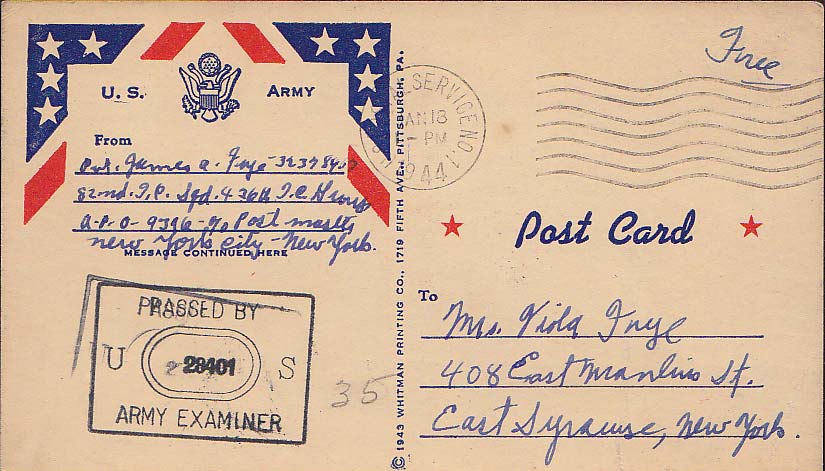 Free
U. S. ARMY
From
Pvt. James A. Frye
82nd. F.P. Sqd. 436th
A-P-O- 9396 - % Post master
New York City - New York.
MESSAGE CONTINUED HERE
PASSED BY
U 28401 S
ARMY EXAMINER
35
© 1943 WHITMAN PRINTING CO., 1719 FIFTH AVE., PITTSBURGH, PA.
SERVICE NO. 1
JAN 18
PM
1944
Post Card
To
Mrs. Viola Frye
408 East Manlius St.
East Syracuse, New York.